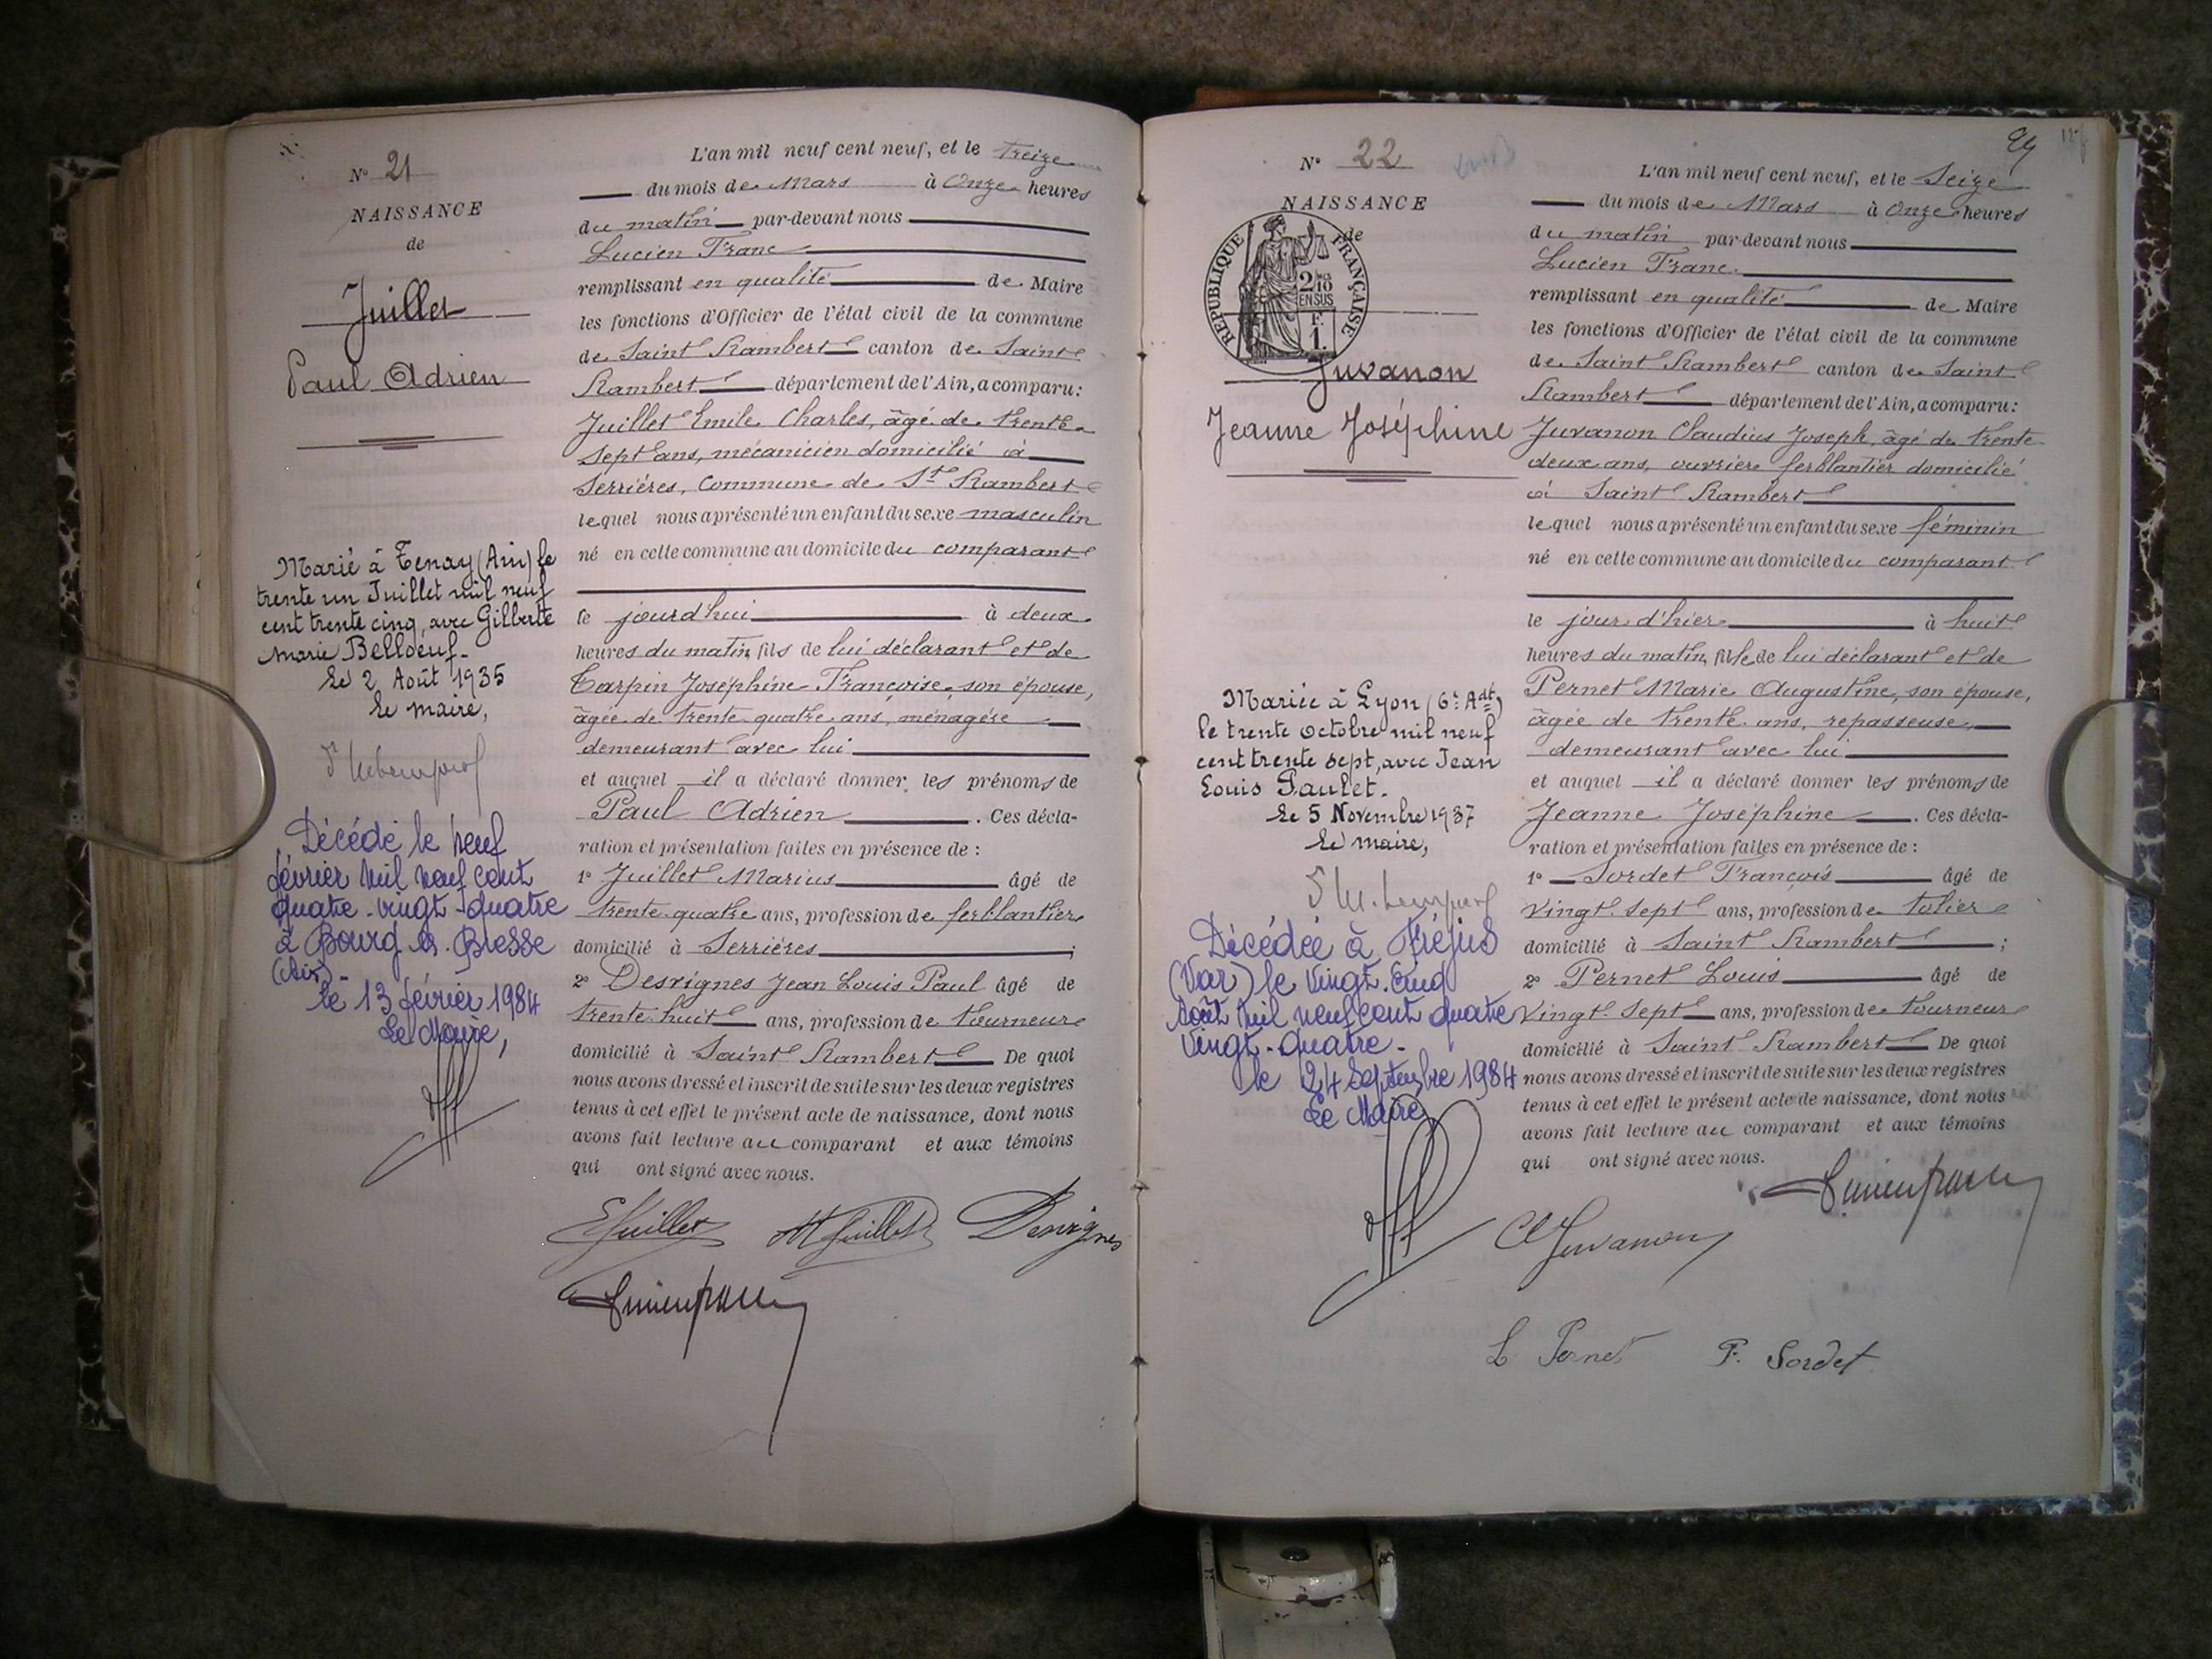 N° 21
NAISSANCE
de
Juillet
Paul Adrien
Marié à Tenay (Ain) le
trente un Juillet mil neuf
cent trente cinq, avec Gilberte
Marie Belloeuf.
Le 2 Août 1935
Le maire,
Décédé le neuf
février mil neuf cent
quatre-vingt-quatre
à Bourg en Bresse
(Ain).
le 13 février 1984
Le Maire,
L'an mil neuf cent neuf, et le treize
du mois de Mars à Onze heures
du matin par-devant nous
Lucien Franc
remplissant en qualité de Maire
les fonctions d'Officier de l'état civil de la commune
de Saint Rambert canton de Saint
Rambert département de l'Ain, a comparu:
Juillet Emile Charles, âgé de trente
sept ans, mécanicien domicilié à
Serrières, Commune de St Rambert
lequel nous a présenté un enfant du sexe masculin
né en cette commune au domicile du comparant
le jourd'hui à deux
heures du matin, fils de lui déclarant et de
Tarpin Joséphine Françoise, son épouse,
âgée de trente quatre ans, ménagère
demeurant avec lui
et auquel il a déclaré donner les prénoms de
Paul Adrien . Ces décla-
ration et présentation faites en présence de :
1° Juillet Marius âgé de
trente-quatre ans, profession de ferblantier
domicilié à Serrières ;
2° Desvignes Jean Louis Paul âgé de
trente huit ans, profession de tourneur
domicilié à Saint Rambert De quoi
nous avons dressé et inscrit de suite sur les deux registres
tenus à cet effet le présent acte de naissance, dont nous
avons fait lecture au comparant et aux témoins
qui ont signé avec nous.
EJuillet MJuillet Desvignes
Lucien franc
N° 22
NAISSANCE
de
RÉPUBLIQUE FRANÇAISE
2/10
EN SUS
F.
1.
Juvanon
Jeanne Joséphine
Mariée à Lyon (6e Adt)
le trente octobre mil neuf
cent trente sept, avec Jean
Louis Paulet.
Le 5 Novembre 1937
Le maire,
Décédée à Fréjus
(Var) le vingt-cinq
Août mil neuf cent quatre
vingt-quatre.
le 24 Septembre 1984
Le Maire,
L'an mil neuf cent neuf, et le Seize
du mois de Mars à Onze heures
du matin par-devant nous
Lucien Franc
remplissant en qualité de Maire
les fonctions d'Officier de l'état civil de la commune
de Saint Rambert canton de Saint
Rambert département de l'Ain, a comparu:
Juvanon Claudius Joseph, âgé de trente
deux ans, ouvrier ferblantier domicilié
à Saint Rambert
lequel nous a présenté un enfant du sexe féminin
né en cette commune au domicile du comparant
le jour d'hier à huit
heures du matin, fille de lui déclarant et de
Pernet Marie Augustine, son épouse,
âgée de trente ans, repasseuse,
demeurant avec lui
et auquel il a déclaré donner les prénoms de
Jeanne Joséphine . Ces décla-
ration et présentation faites en présence de :
1° Sordet François âgé de
vingt-sept ans, profession de tolier
domicilié à Saint Rambert ;
2° Pernet Louis âgé de
vingt-sept ans, profession de tourneur
domicilié à Saint Rambert De quoi
nous avons dressé et inscrit de suite sur les deux registres
tenus à cet effet le présent acte de naissance, dont nous
avons fait lecture au comparant et aux témoins
qui ont signé avec nous.
Lucien franc
Cl Juvanon
L Pernet P. Sordet